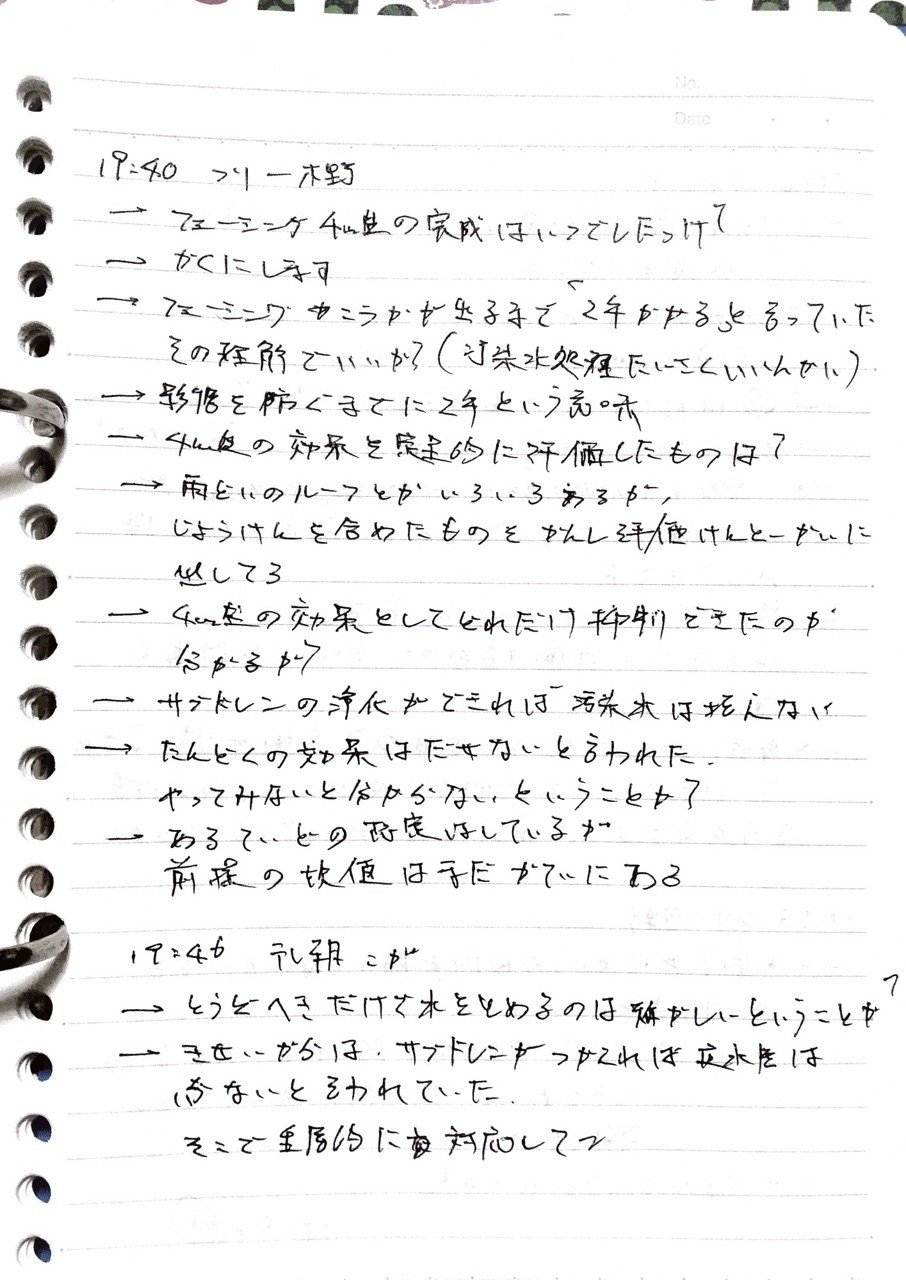 No.
Date
19:40 フリー木野
→ フェーシング4m盤の完成はいつでしたっけ?
→ かくにします
→ フェーシング こうかが出るまで「2年かかる」と言っていた
その理解でいいか?(汚染水処理たいさくいいんかい)
→ 影響を防ぐまでに2年という意味
→ 4m盤の効果を定量的に評価したものは?
→ 雨どいのルーフとかいろいろあるが、
じょうけんを含めたものをかんし評価けんとーかいに
出してる
→ 4m盤の効果としてどれだけ抑制できたのか
分かるか?
→ サブドレンの浄化ができれば汚染水は増えない
→ たんどくの効果はだせないと言われた.
やってみないと分からないということか?
→ あるていどの設定はしているが
前提の数値はまだかていにある
19:46 テレ朝 こが
→ とうどへきだけで水をとめるのは難かしいということか?
→ きせいからは、サブドレンがつかえれば 水 は
ないと言われていた.
そこで重層的に 対応してつ